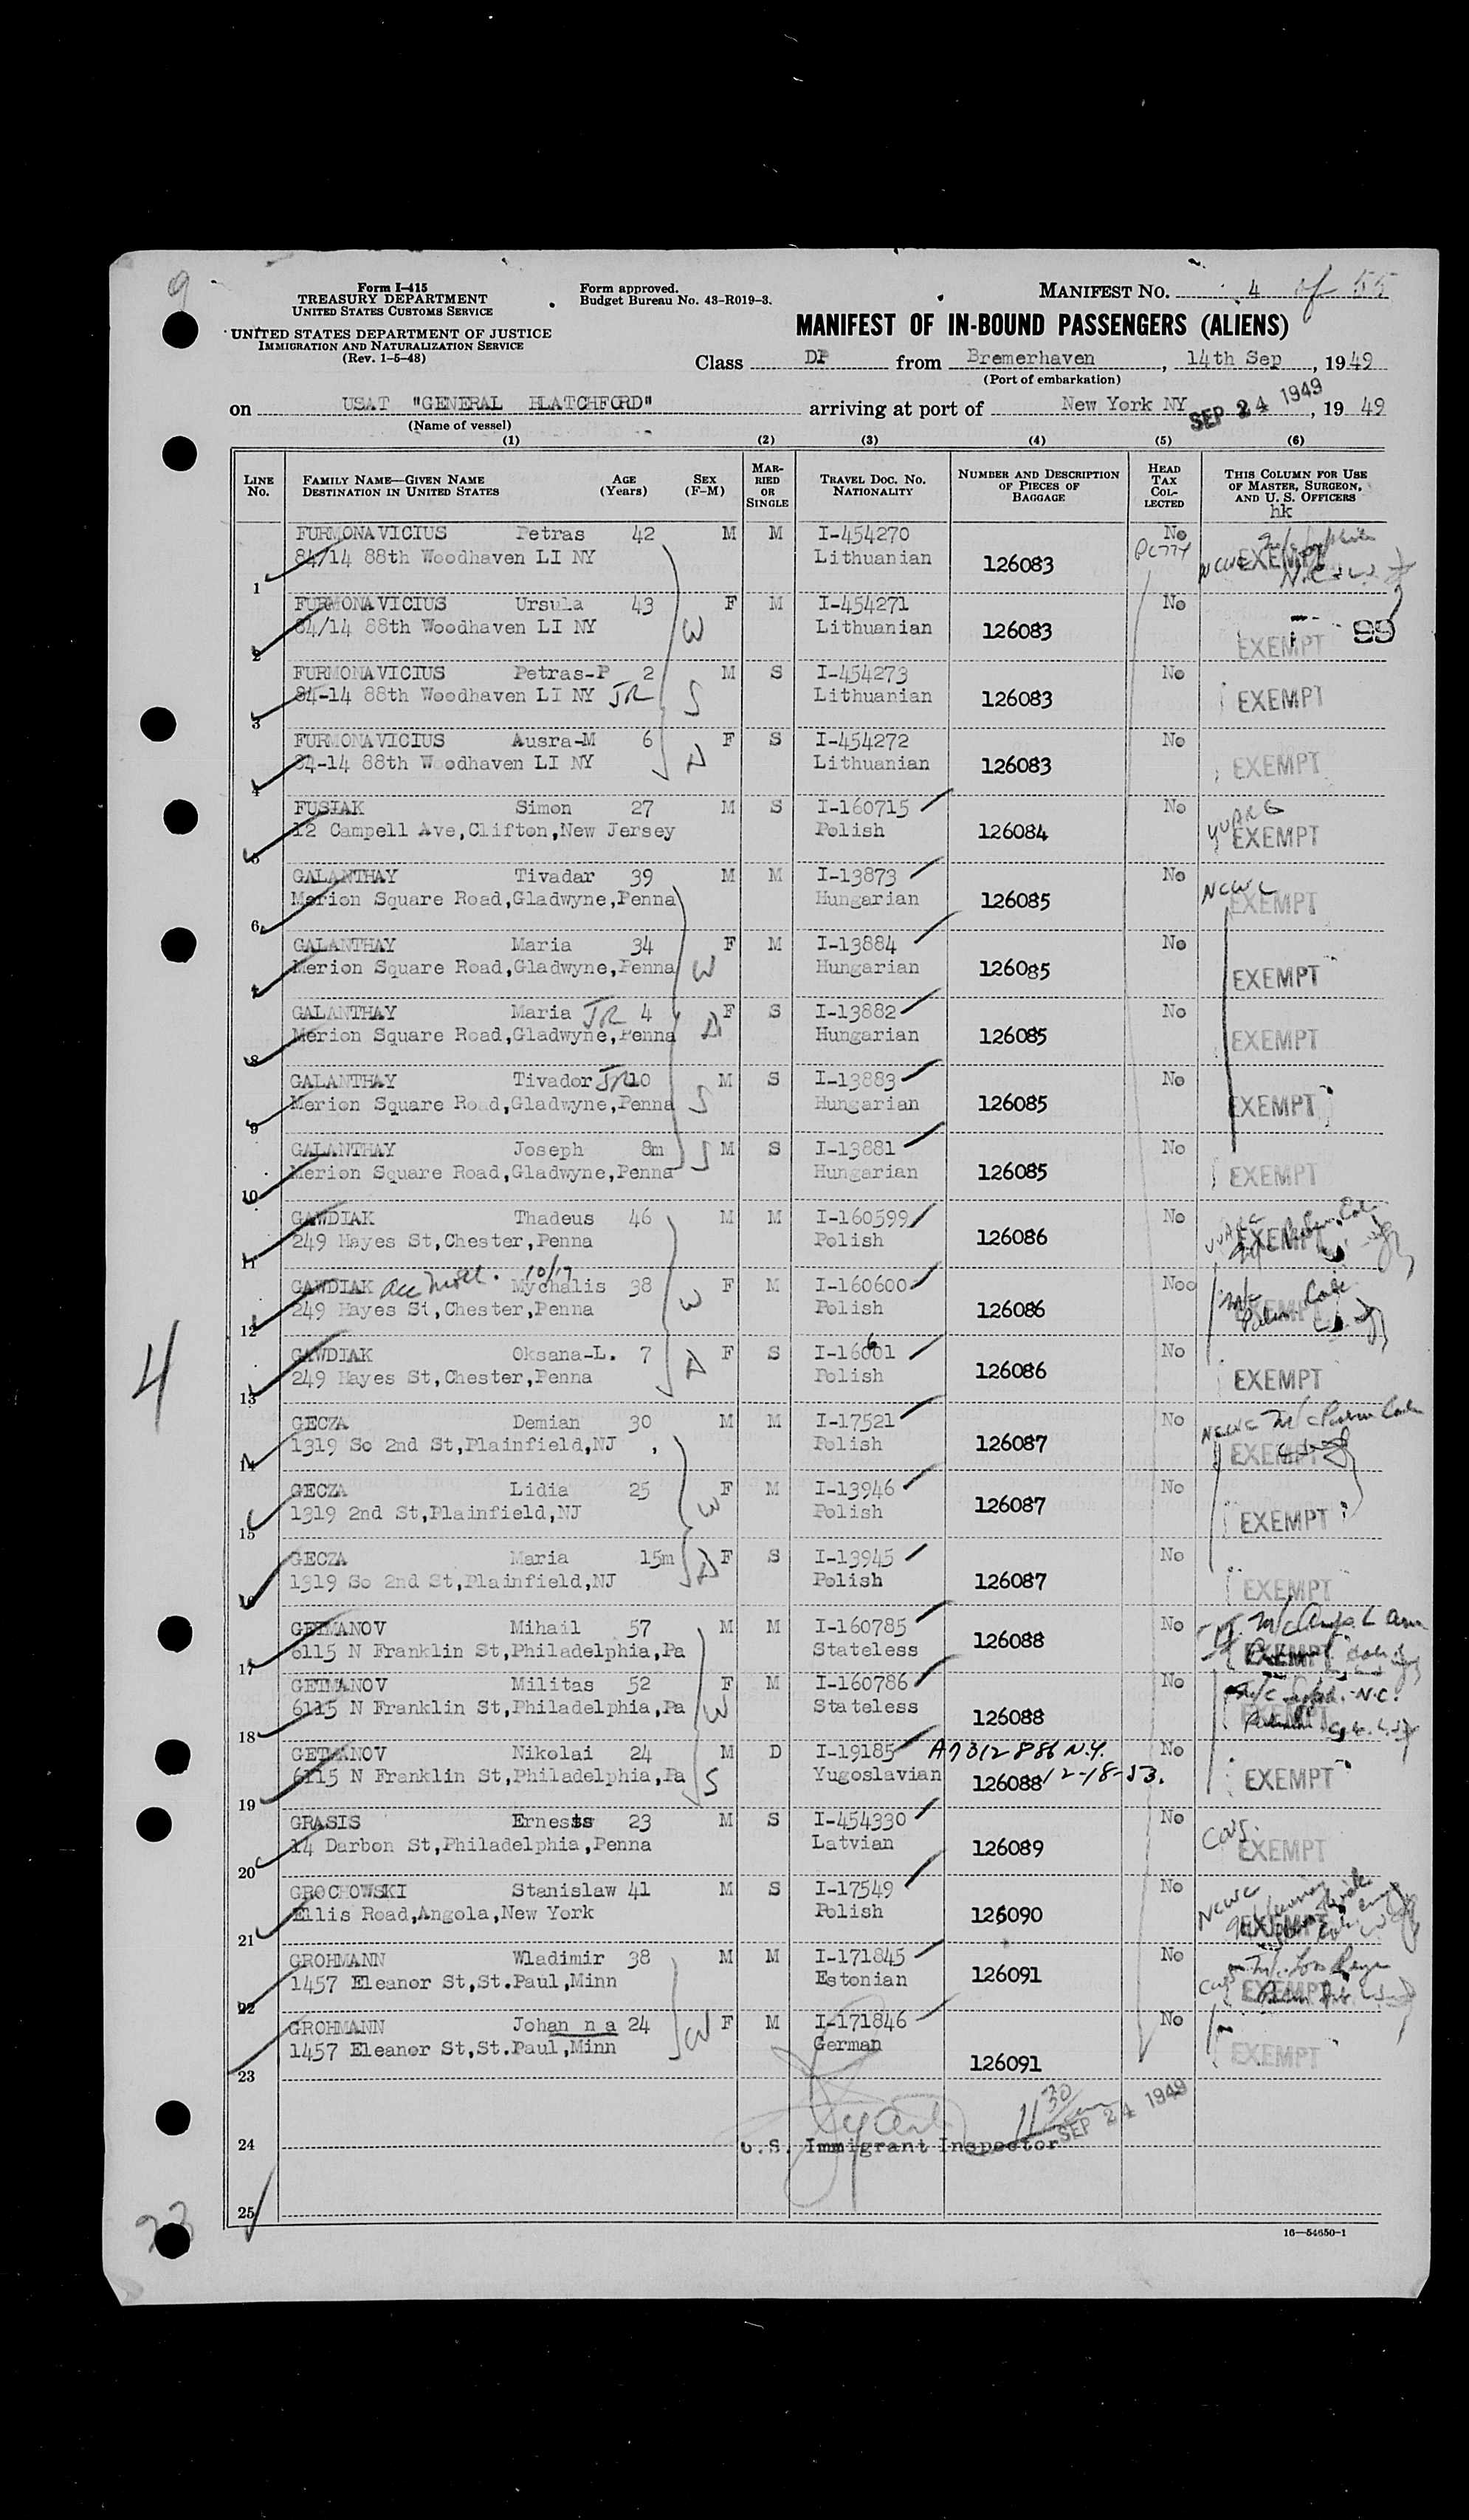 9
Form I-415
TREASURY DEPARTMENT
UNITED STATES CUSTOMS SERVICE
UNITED STATES DEPARTMENT OF JUSTICE
IMMIGRATION AND NATURALIZATION SERVICE
(Rev. 1-5-48)
Form approved.
Budget Bureau No. 43-R019-3.
MANIFEST NO. 4 of 55
MANIFEST OF IN-BOUND PASSENGERS (ALIENS)
Class DP from Bremerhaven, 14th Sep, 1949
(Port of embarkation)
on USAT "GENERAL BLATCHFORD" arriving at port of New York NY SEP 24 1949, 1949
(Name of vessel)
(1) (2) (3) (4) (5) (6)
LINE No. FAMILY NAME—GIVEN NAME DESTINATION IN UNITED STATES AGE (Years) SEX (F-M) MARRIED OR SINGLE TRAVEL DOC. NO. NATIONALITY NUMBER AND DESCRIPTION OF PIECES OF BAGGAGE HEAD TAX COLLECTED THIS COLUMN FOR USE OF MASTER, SURGEON, AND U. S. OFFICERS
hk
FURMONAVICIUS Petras 42 M M I-454270 No
1 84/14 88th Woodhaven LI NY Lithuanian 126083 NCWC EXEMPT
FURMONAVICIUS Ursula 43 F M I-454271 No
2 84/14 88th Woodhaven LI NY W Lithuanian 126083 EXEMPT 99
FURMONAVICIUS Petras-P 2 M S I-454273 No
3 84-14 88th Woodhaven LI NY JR S Lithuanian 126083 EXEMPT
FURMONAVICIUS Ausra-M 6 F S I-454272 No
4 84-14 88th Woodhaven LI NY D Lithuanian 126083 EXEMPT
FUSIAK Simon 27 M S I-160715 No
5 12 Campell Ave,Clifton,New Jersey Polish 126084 EXEMPT
GALANTHAY Tivadar 39 M M I-13873 No NCWC
6 Merion Square Road,Gladwyne,Penna Hungarian 126085 EXEMPT
GALANTHAY Maria 34 F M I-13884 No
7 Merion Square Road,Gladwyne,Penna W Hungarian 126085 EXEMPT
GALANTHAY Maria JR 4 F S I-13882 No
8 Merion Square Road,Gladwyne,Penna D Hungarian 126085 EXEMPT
GALANTHAY Tivador JR 10 M S I-13883 No
9 Merion Square Road,Gladwyne,Penna S Hungarian 126085 EXEMPT
GALANTHAY Joseph 8m S M S I-13881 No
10 Merion Square Road,Gladwyne,Penna Hungarian 126085 EXEMPT
GAWDIAK Thadeus 46 M M I-160599 No
11 249 Hayes St,Chester,Penna Polish 126086 EXEMPT
GAWDIAK 10/17 Mychalis 38 F M I-160600 Noo
12 249 Hayes St,Chester,Penna W Polish 126086 EXEMPT
4
GAWDIAK Oksana-L. 7 F S I-160601 No
13 249 Hayes St,Chester,Penna D Polish 126086 EXEMPT
GECZA Demian 30 M M I-17521 No NCWC
14 1319 So 2nd St,Plainfield,NJ Polish 126087 EXEMPT
GECZA Lidia 25 F M I-13946 No
15 1319 2nd St,Plainfield,NJ W Polish 126087 EXEMPT
GECZA Maria 15m F S I-13945 No
16 1319 So 2nd St,Plainfield,NJ D Polish 126087 EXEMPT
GETMANOV Mihail 57 M M I-160785 No
17 6115 N Franklin St,Philadelphia,Pa Stateless 126088 EXEMPT
GETMANOV Militas 52 F M I-160786 No
18 6115 N Franklin St,Philadelphia,Pa W Stateless 126088 EXEMPT
GETMANOV Nikolai 24 M D I-19185 A7312886 N.Y. No
19 6115 N Franklin St,Philadelphia,Pa S Yugoslavian 126088 12-18-53. EXEMPT
GRASIS Ernests 23 M S I-454330 No
20 14 Darbon St,Philadelphia,Penna Latvian 126089 EXEMPT
GROCHOWSKI Stanislaw 41 M S I-17549 No NCWC
21 Ellis Road,Angola,New York Polish 126090 EXEMPT
GROHMANN Wladimir 38 M M I-171845 No
22 1457 Eleanor St,St.Paul,Minn Estonian 126091 EXEMPT
GROHMANN Johan n a 24 W F M I-171846 No
23 1457 Eleanor St,St.Paul,Minn German 126091 EXEMPT
11 30 SEP 24 1949
24 U.S. Immigrant Inspector
25
23
16—54650-1